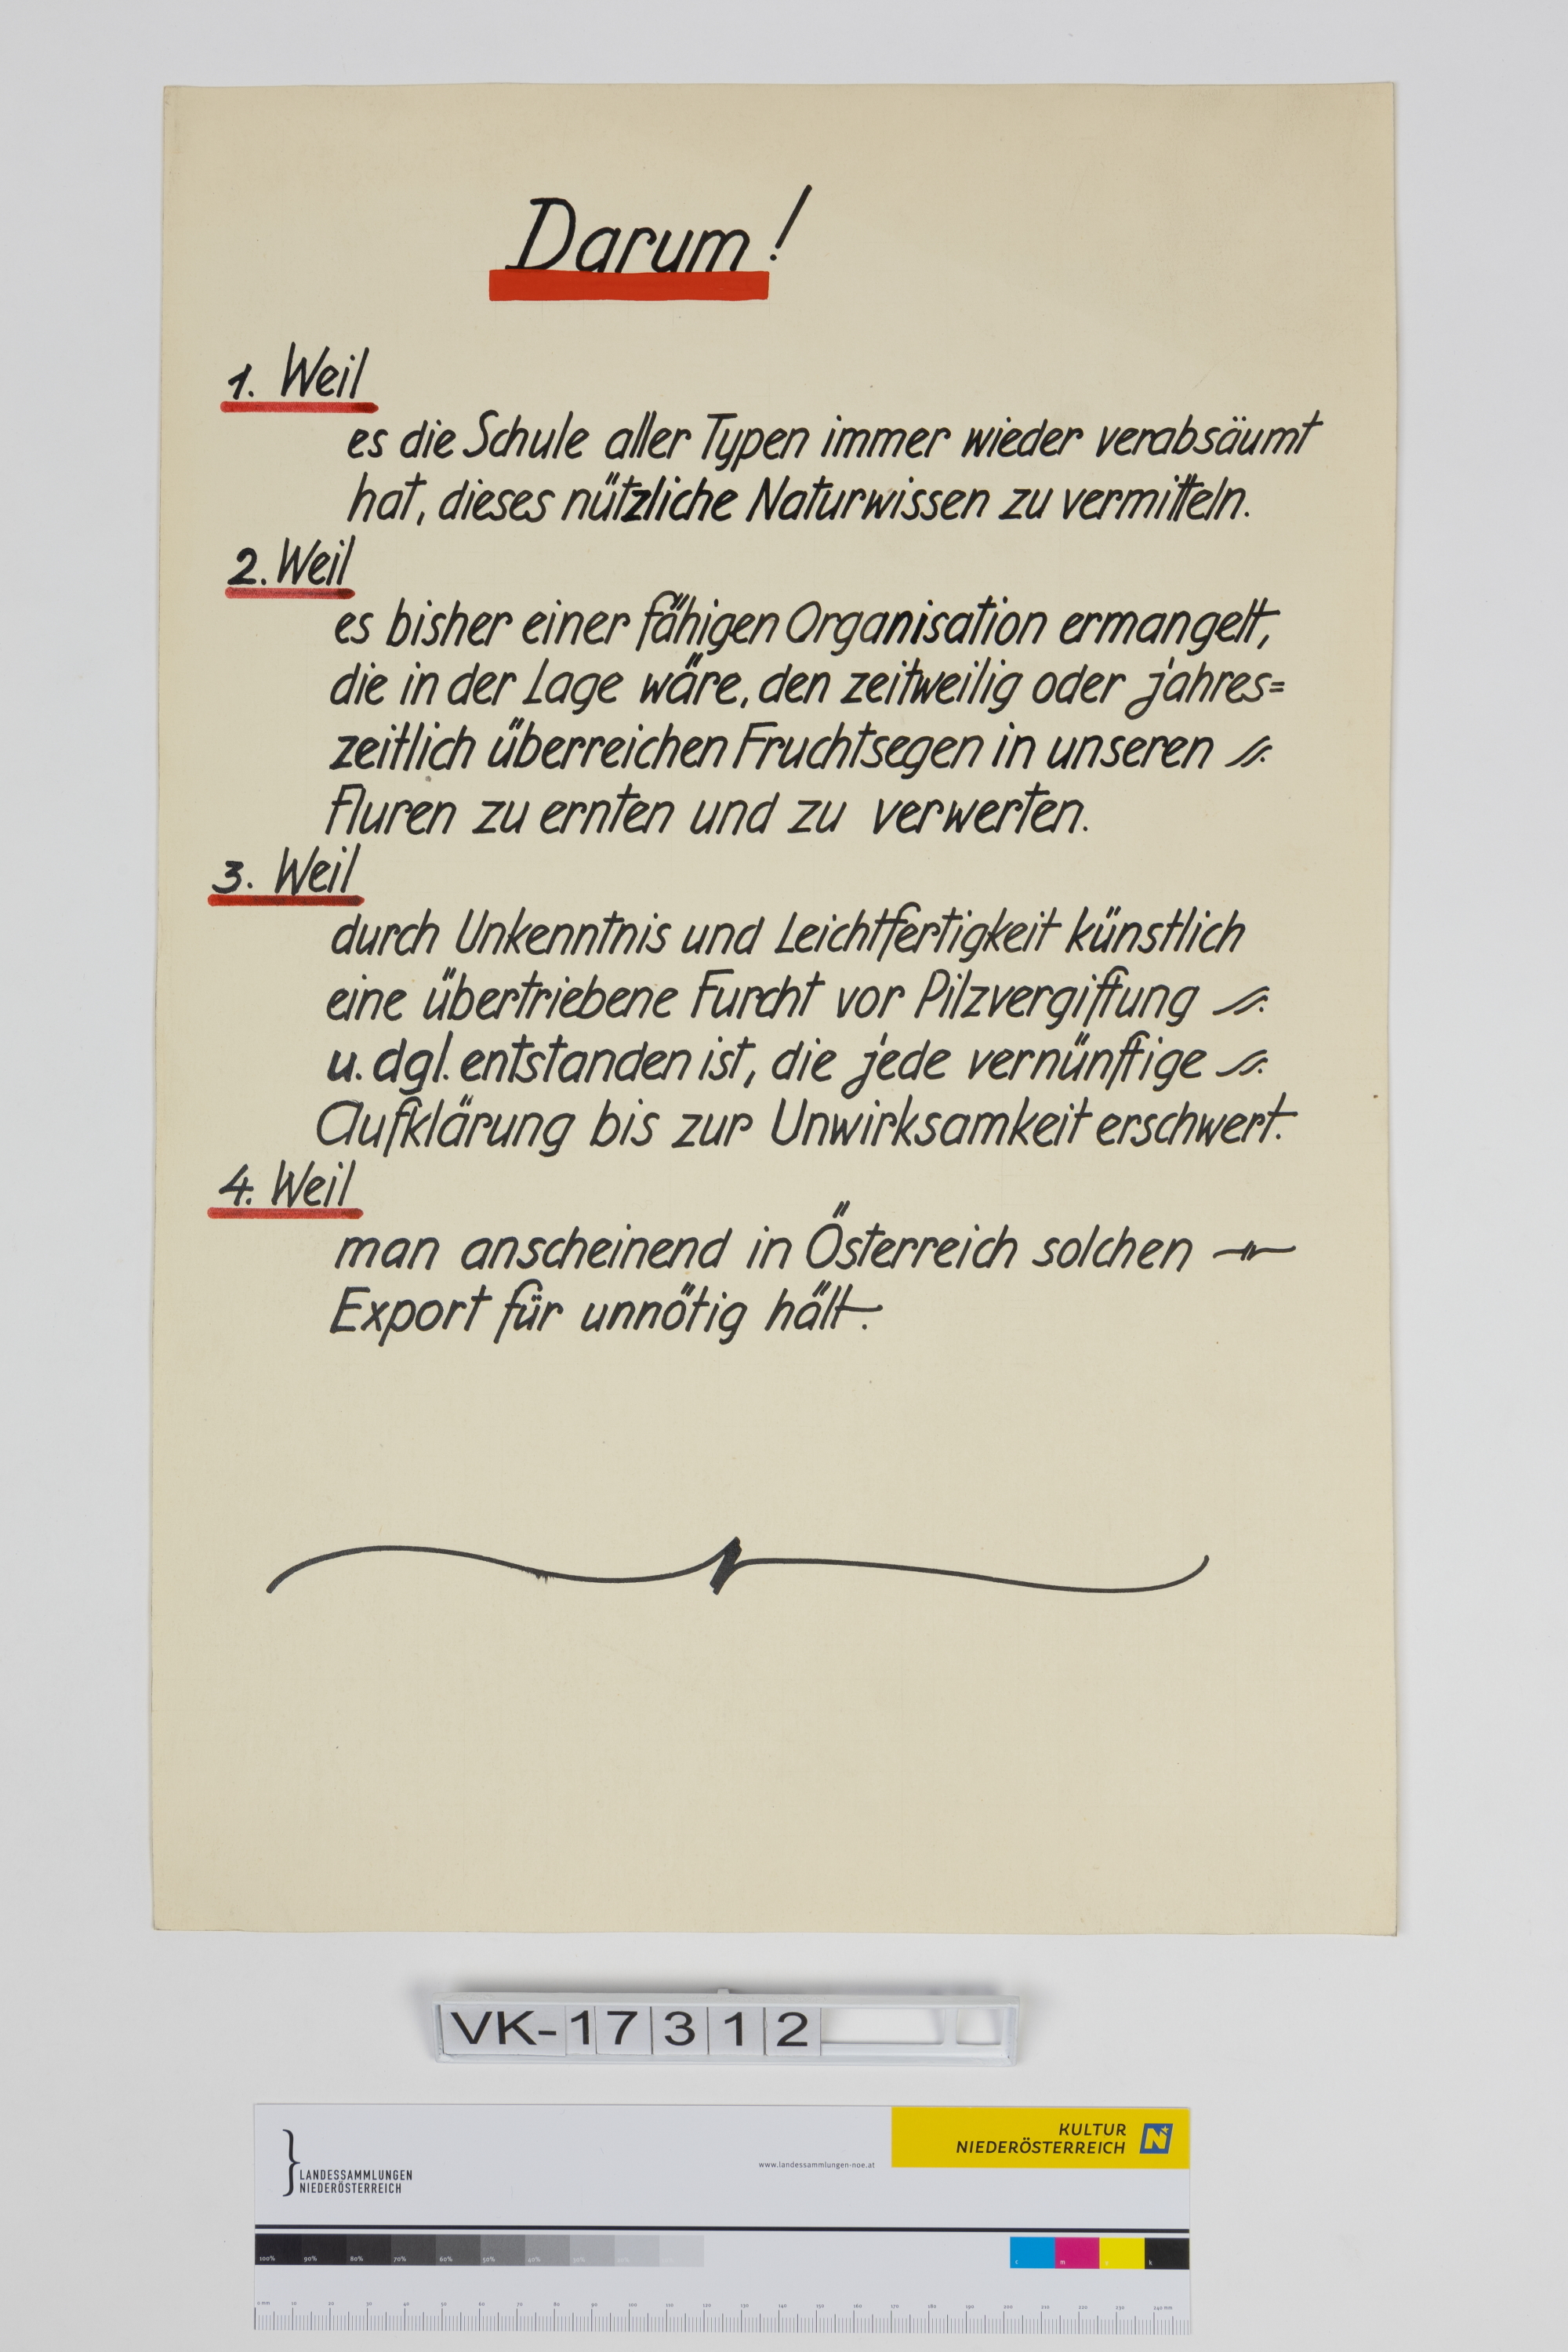 Darum!
1. Weil
es die Schule aller Typen immer wieder verabsäumt
hat, dieses nützliche Naturwissen zu vermitteln.
2. Weil
es bisher einer fähigen Organisation ermangelt,
die in der Lage wäre, den zeitweilig oder jahres=
zeitlich überreichen Fruchtsegen in unseren
Fluren zu ernten und zu verwerten.
3. Weil
durch Unkenntnis und Leichtfertigkeit künstlich
eine übertriebene Furcht vor Pilzvergiftung
u. dgl. entstanden ist, die jede vernünftige
Aufklärung bis zur Unwirksamkeit erschwert.
4. Weil
man anscheinend in Österreich solchen
Export für unnötig hält.
VK-17312
KULTUR
NIEDERÖSTERREICH
www.landessammlungen-noe.at
LANDESSAMMLUNGEN
NIEDERÖSTERREICH
100% 90% 80% 70% 60% 50% 40% 30%
c m y k
0 mm 10 20 30 40 50 60 70 80 90 100 110 120 130 140 150 160 170 180 190 200 210 220 230 240 mm